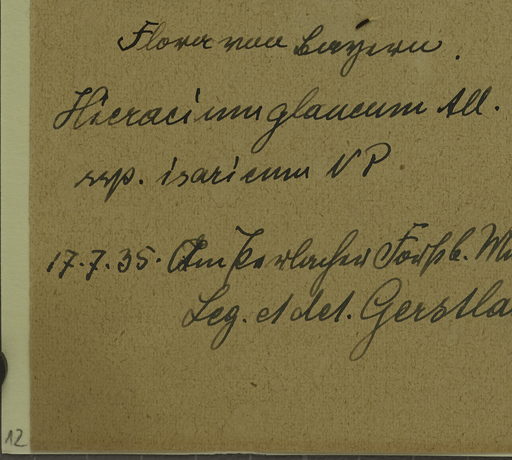 Flora von Bayern.
Hieracium glaucum All.
ssp. isaricum NP
17.7.35. Am Perlacher Forst b. Mü
Leg. et det. Gerstla
12